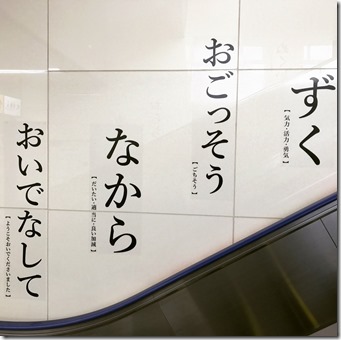 ずく
【気力・活力・勇気】
おごっそう
【ごちそう】
なから
【だいたい・適当に・良い加減】
おいでなして
【ようこそおいでくださいました】